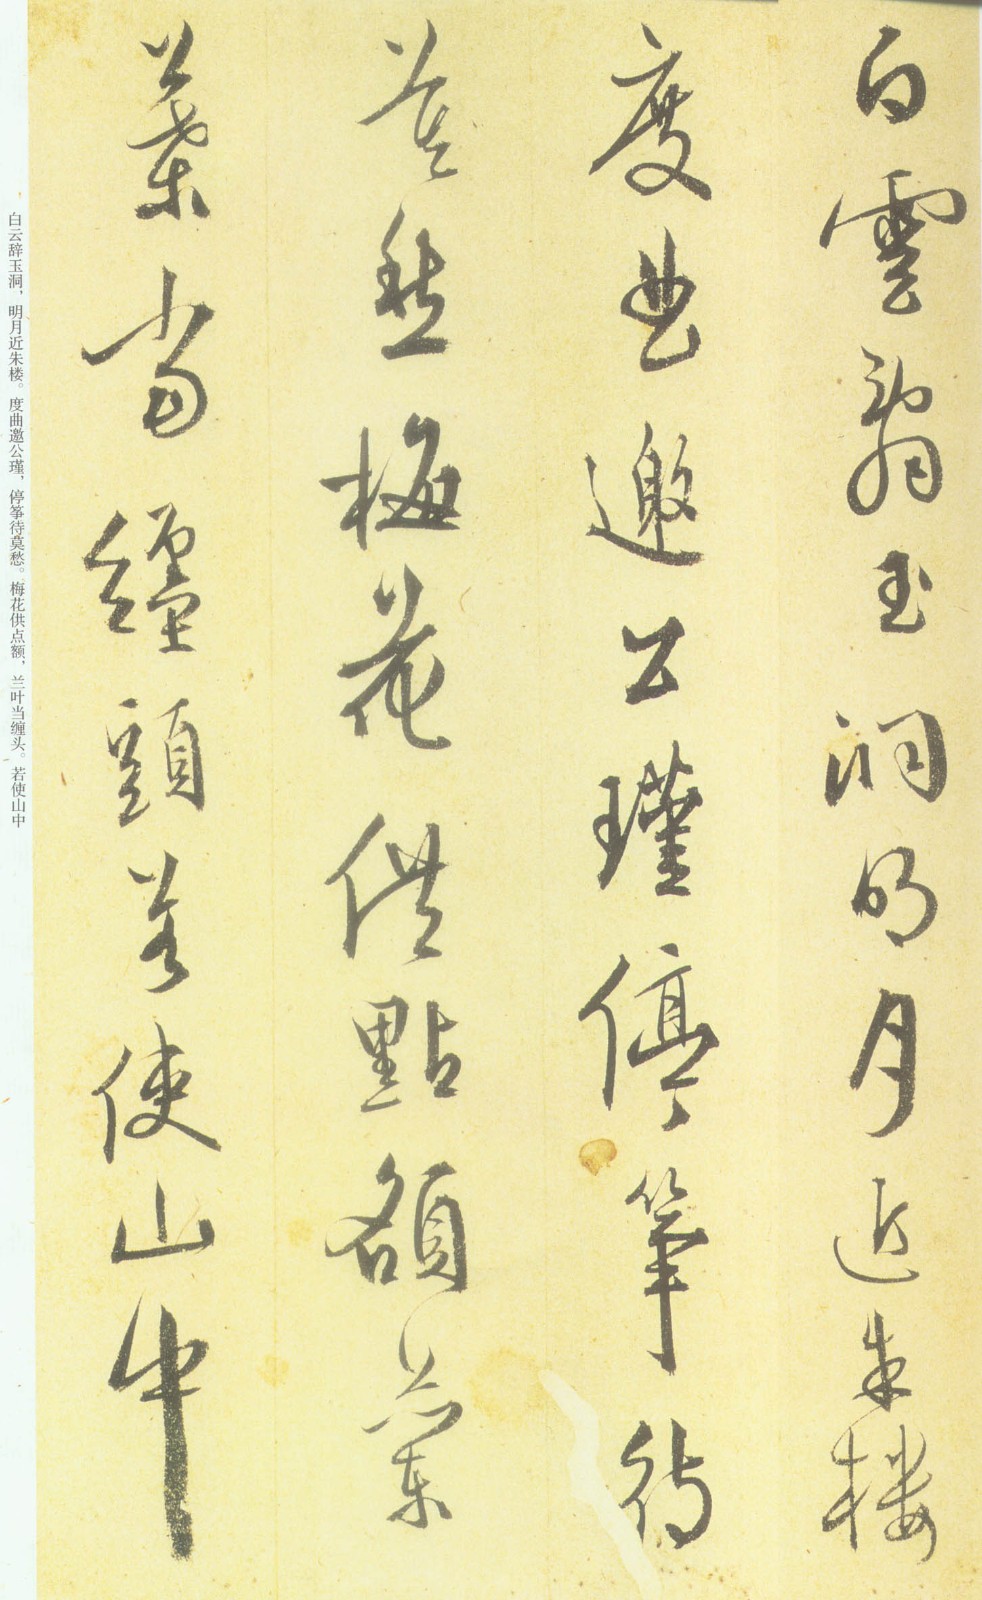 白雲辭玉洞明月近朱樓
度曲邀公瑾停筝待
莫愁梅花供點額蘭
葉當纏頭若使山中
白云辞玉洞，明月近朱楼。度曲邀公瑾，停筝待莫愁。梅花供点额，兰叶当缠头。若使山中